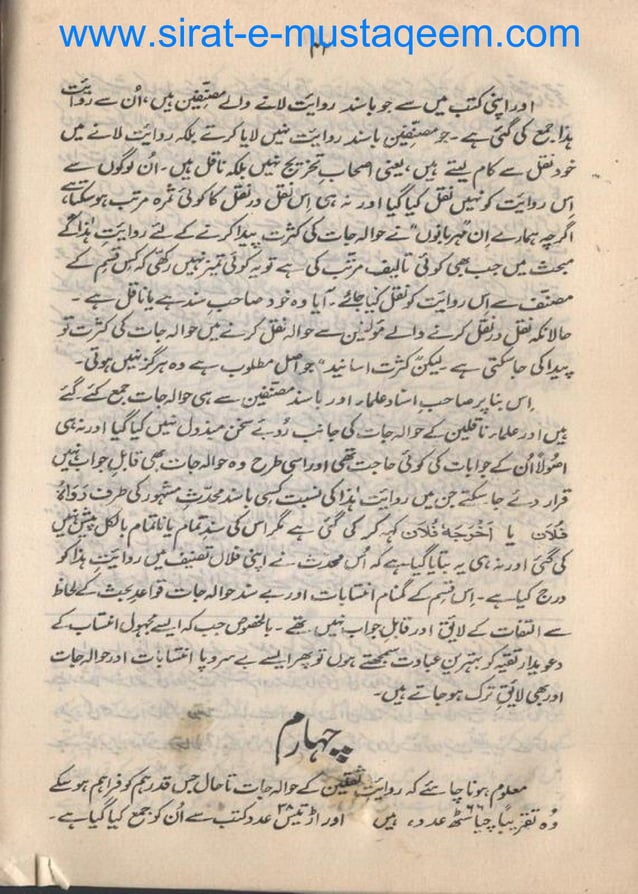 www.sirat-e-mustaqeem.com
اور اپنی کتب میں سے جو باسند روایت لانے والے مصنّفین ہیں، اُن سے روایت
ہذا جمع کی گئی ہے۔ جو مصنّفین باسند روایت نہیں لایا کرتے بلکہ روایت لانے میں
خود نقل سے کام لیتے ہیں، یعنی اصحابِ تخریج نہیں بلکہ ناقل ہیں۔ اُن لوگوں سے
اِس روایت کو نہیں نقل کیا گیا اور نہ ہی اِس نقل در نقل کا کوئی ثمرہ مرتب ہو سکتا ہے،
اگرچہ ہمارے اِن "مہربانوں" نے حوالہ جات کی کثرت پیدا کرنے کے لئے روایتِ ہٰذا کے
مبحث میں جب بھی کوئی تالیف مرتب کی ہے تو یہ کوئی تمیز نہیں رکھی کہ کس قسم کے
مصنّف سے اس روایت کو نقل کیا جائے۔ آیا وہ خود صاحبِ سند ہے یا ناقل ہے۔
حالانکہ نقل در نقل کرنے والے مؤلفین سے حوالہ نقل کرنے میں حوالہ جات کی کثرت تو
پیدا کی جا سکتی ہے لیکن "کثرت اسانید" جو اصل مطلوب ہے وہ ہرگز نہیں ہوتی۔
اِس بنا پر صاحبِ اسناد علماء اور باسند مصنّفین سے ہی حوالہ جات جمع کئے گئے
ہیں اور علماء ناقلین کے حوالہ جات کی جانب رُوئے سخن مبذول نہیں کیا گیا اور نہ ہی
اصولاً اُن کے جوابات کی کوئی حاجت تھی اور اسی طرح وہ حوالہ جات بھی قابلِ جواب نہیں
قرار دئے جا سکتے جن میں روایت ہٰذا کی نسبت کسی باسند محدّثِ مشہور کی طرف رَوَاہُ
فُلَان یا اَخْرَجَهٗ فُلَان کہہ کر کی گئی ہے مگر اس کی سند تمام یا ناتمام بالکل پیش نہیں
کی گئی اور نہ ہی یہ بتایا گیا ہے کہ اُس محدّث نے اپنی فلاں تصنیف میں روایتِ ہذا کو
درج کیا ہے۔ اِس قسم کے گمنام انتسابات اور بے سند حوالہ جات قواعدِ بحث کے لحاظ
سے التفات کے لائق اور قابلِ جواب نہیں تھے۔ بالخصوص جب کہ ایسے مجہول انتساب کے
دعویدار تقیّہ کو بہترین عبادت سمجھتے ہوں تو پھر ایسے بے سروپا انتسابات اور حوالہ جات
اور بھی لائقِ ترک ہو جاتے ہیں۔
چہارم
معلوم ہونا چاہئے کہ روایتِ ثقلین کے حوالہ جات تا حال جس قدر ہم کو فراہم ہو سکے
وہ تقریباً چھیاسٹھ ۶۶ عدد، ہیں اور اڑتیس ۳۸ عدد کتب سے اُن کو جمع کیا گیا ہے۔